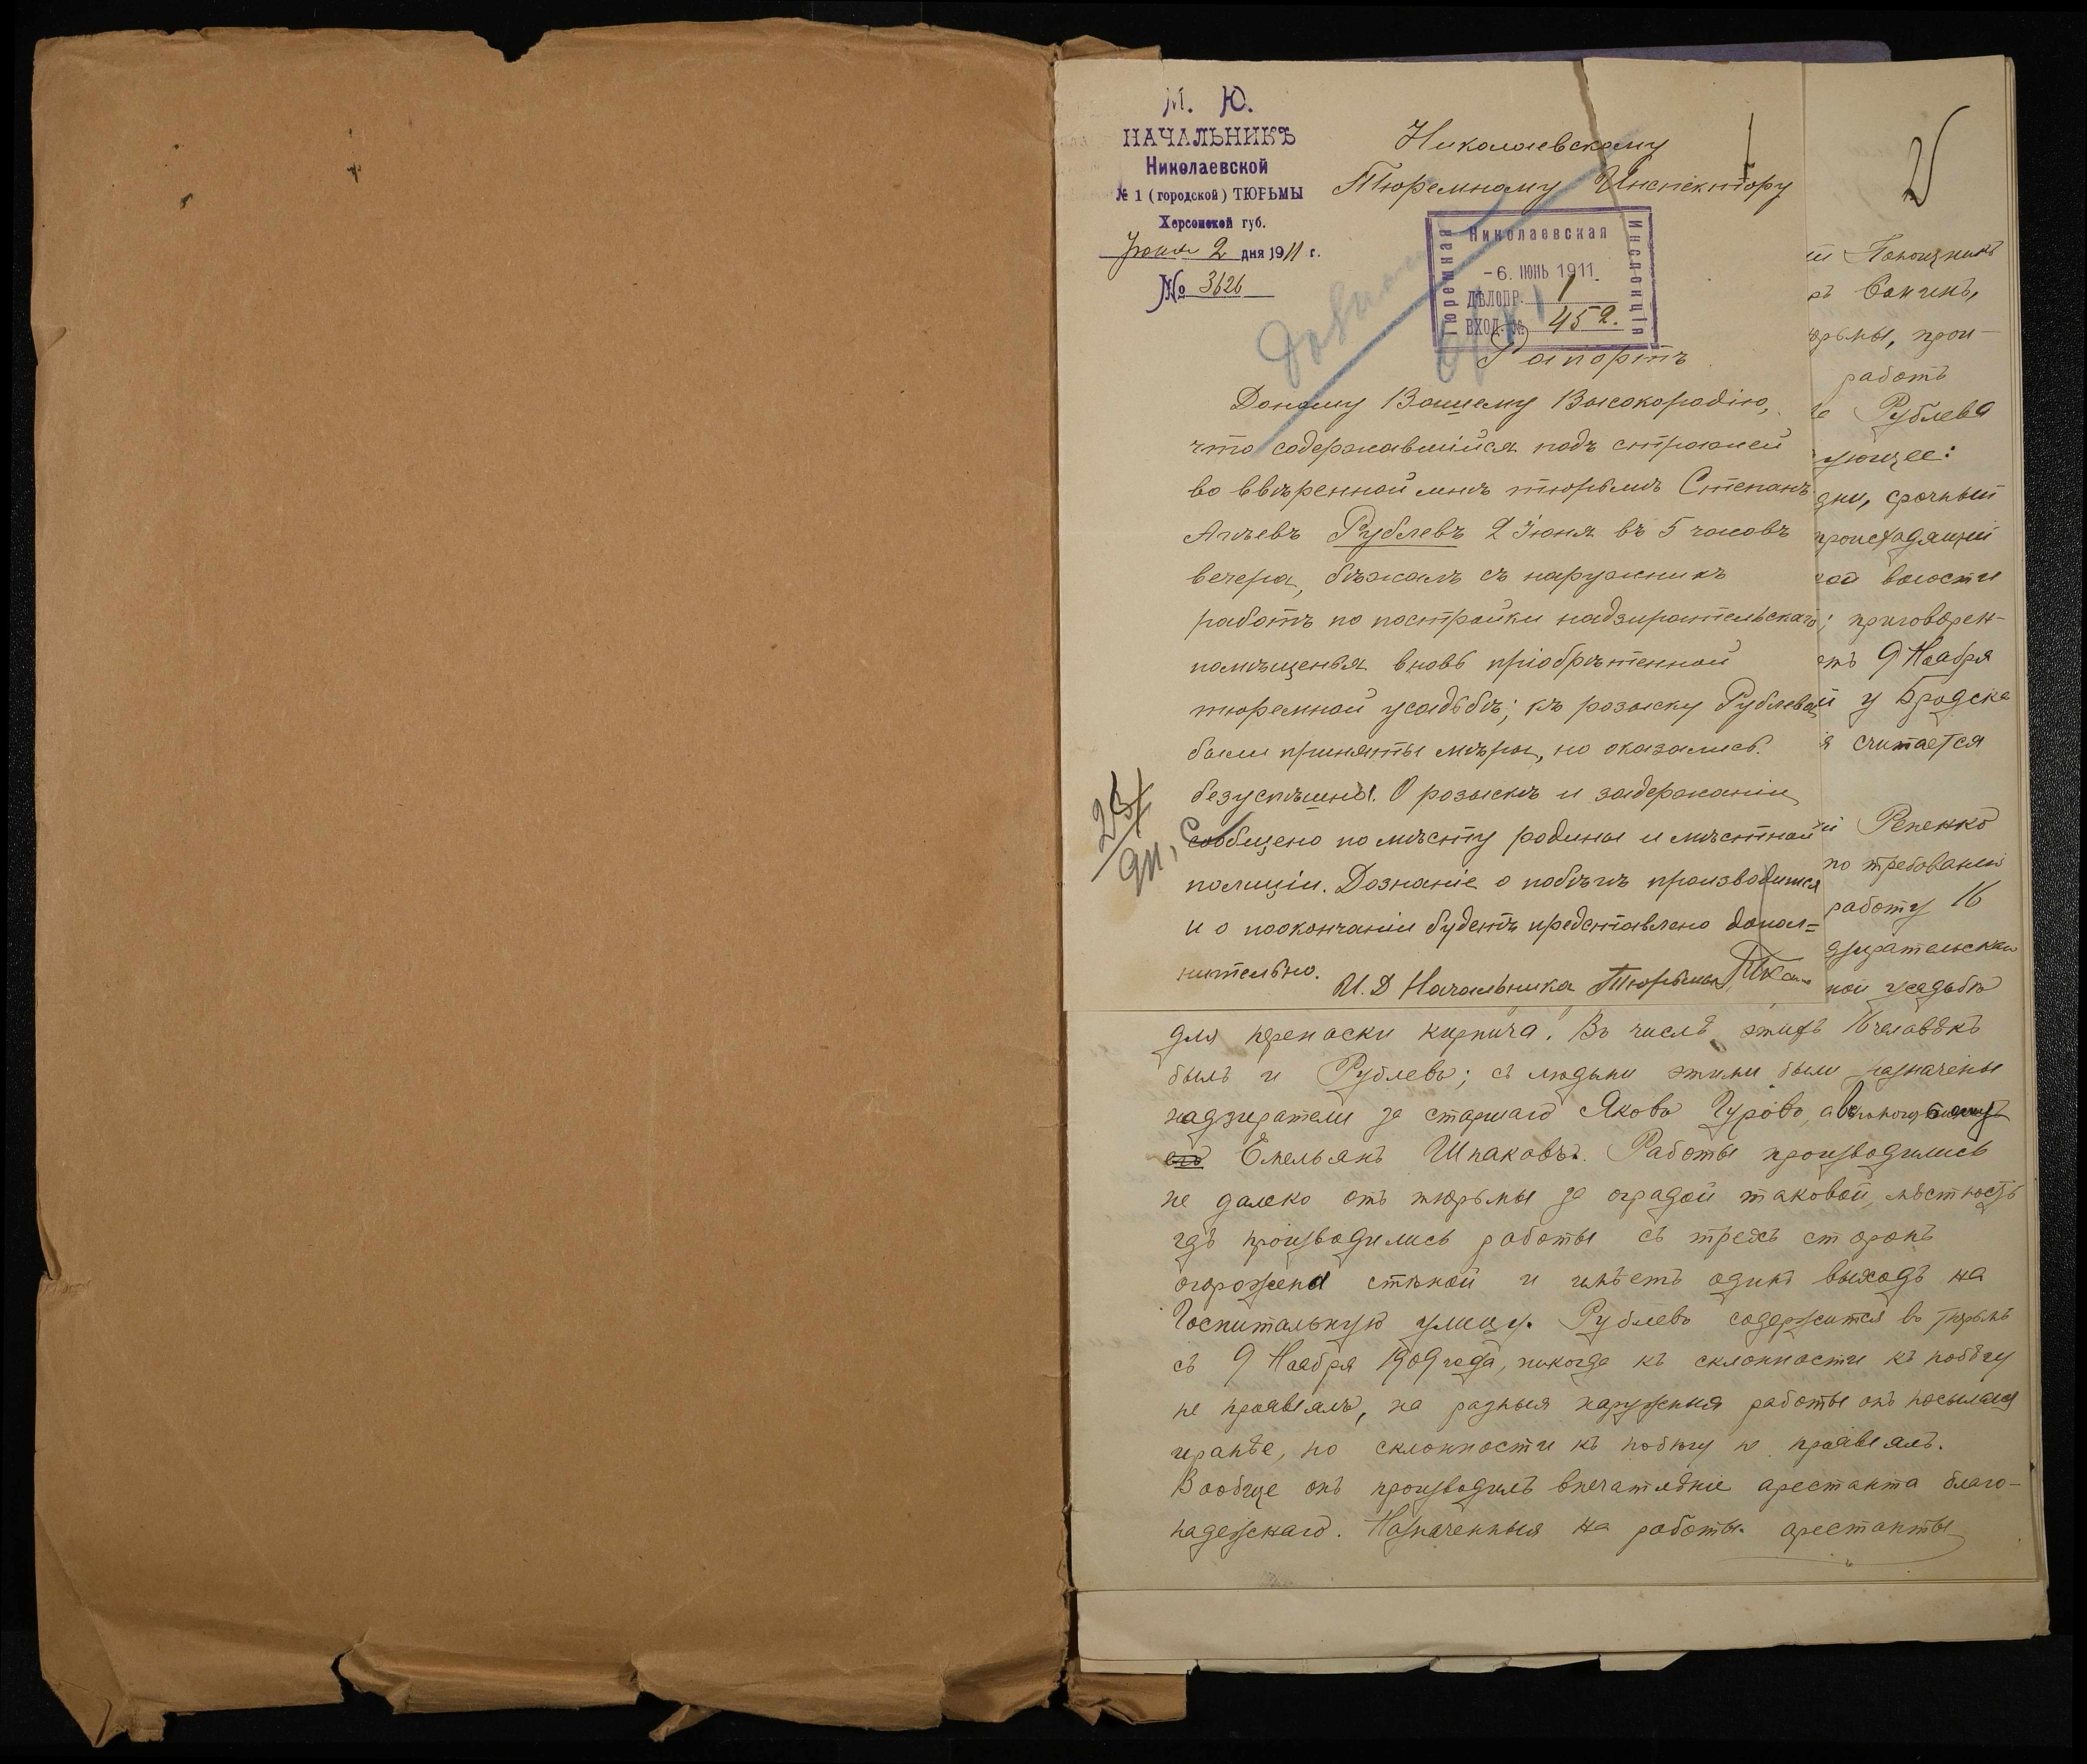 М. Ю.
НАЧАЛЬНИКЪ
Николаевской
№ 1 (городской) ТЮРЬМЫ
Херсонской губ.
Іюня 2 дня 1911 г.
№ 3626
Николаевскому
Тюремному Инспектору
Николаевская
Тюремная
Инспекція
-6. ІЮНЬ 1911.
ДѢЛОПР. 1
ВХОД. №. 452.
Рапортъ
Доношу Вашему Высокородію,
что содержавшійся подъ стражей
во ввѣренной мнѣ тюрьмѣ Степанъ
Рублевъ 2 Іюня въ 5 часовъ
вечера, бѣжалъ съ наружныхъ
работъ по постройки надзирательскаго
помѣщенья вновь пріобрѣтенной
тюремной усадьбѣ; къ розыску Рублева
были приняты мѣры, но оказались
безуспѣшны. О розыскѣ и задержаніи
сообщено по мѣсту родины и мѣстной
полиціи. Дознаніе о побѣгѣ производится
и о поокончаніи будетъ представлено допол=
нительно.
И. Д Начальника Тюрьмы
2
ъ Ванинъ,
рьмы, прои-
работъ
Рублева
ующее:
дни, срочный
происходящій
кой волости
; приговорен-
етъ 9 Ноября
й у Бродска
я считается
й Репенко
по требованію
работу 16
дзирательскаго
ной усадьбѣ
для переноски кирпича. Въ числѣ этихъ 16 человѣкъ
былъ и Рублевъ; съ людьми этими были назначены
надзиратели за старшаго Яковъ Гуровъ, а въ помощь ему
Емельянъ Шпаковъ. Работы производились
не далеко отъ тюрьмы за оградой таковой, мѣстность
гдѣ производились работы съ трехъ сторонъ
огорожена стѣной и имѣетъ одинъ выходъ на
Госпитальную улицу. Рублевъ содержится въ тюрьмѣ
съ 9 Ноября 1909 года, никогда къ склонности къ побѣгу
не проявлялъ, на разныя наружныя работы онъ посылался
и ранѣе, но склонности къ побѣгу не проявлялъ.
Вообще онъ производилъ впечатлѣніе арестанта благо-
надежнаго. Назначенныя на работы арестанты